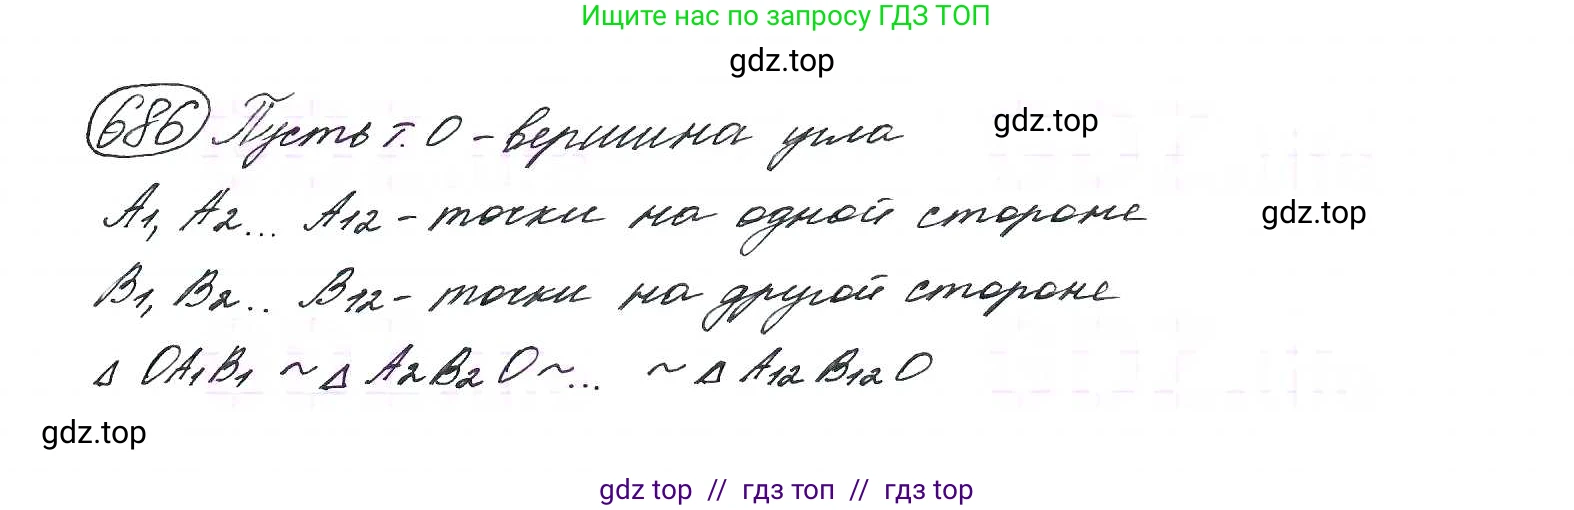 Ищите нас по запросу ГДЗ ТОП
gdz.top
686 Пусть т. O - вершина угла
gdz.top
A1, A2... A12 - точки на одной стороне
gdz.top
B1, B2.. B12 - точки на другой стороне
Δ OA1B1 ~ Δ A2B2O ~... ~ Δ A12B12O
gdz.top
gdz top // гдз топ // гдз top